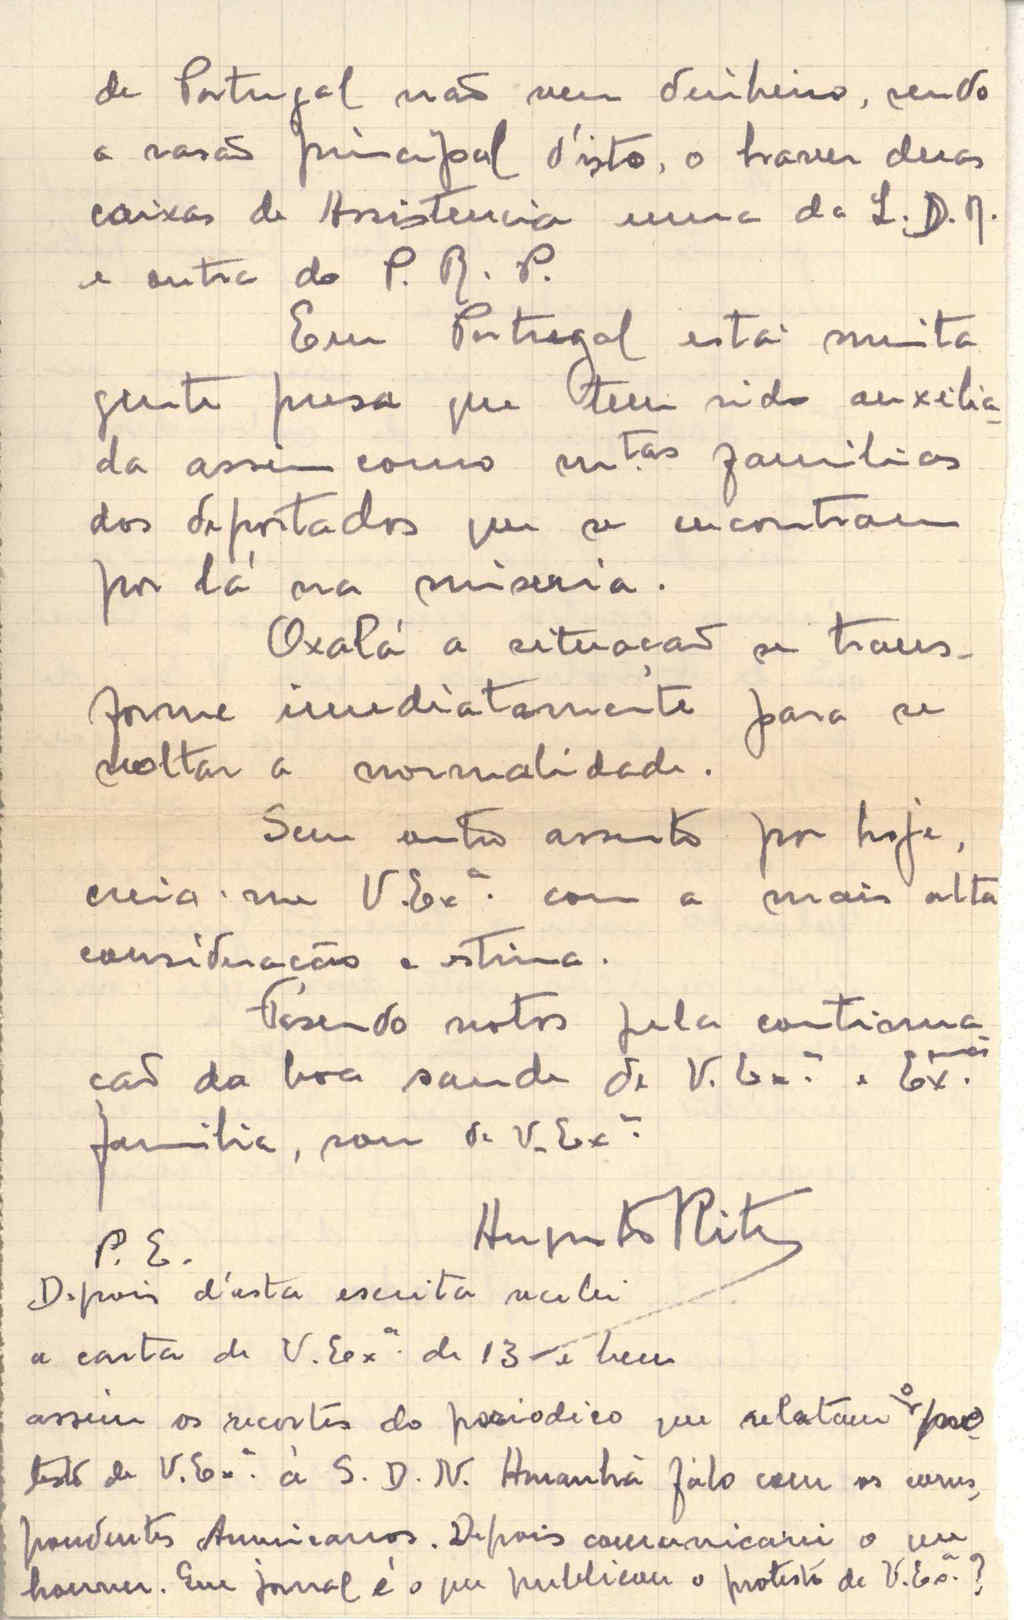 de Portugal não vem dinheiro, sendo
a rasão principal d'isto, o haver duas
caixas de Assistencia uma da L.D.R.
e outra do P. R. P.
Em Portugal está muita
gente presa que tem sido auxilia-
da assim como mtas familias
dos deportados que se encontram
por lá na miseria.
Oxalá a situação se trans-
forme imediatamente para se
voltar a normalidade.
Sem outro assunto por hoje,
creia-me V.Exª. com a mais alta
consideração e estima.
Fasendo votos pela continua
ção da boa saude de V. Exª. e Exma.
familia, sou de V. Exª.
P. E.
Depois d'esta escrita recebi
a carta de V. Exª. de 13 e bem
assim os recortes do periodico que relatam o pro-
testo de V. Exª. á S. D. N. Amanhã falo com os corres-
pondentes Americanos. Depois comunicarei o que
houver. Em jornal é o que publicou o protesto de V. Exª.?